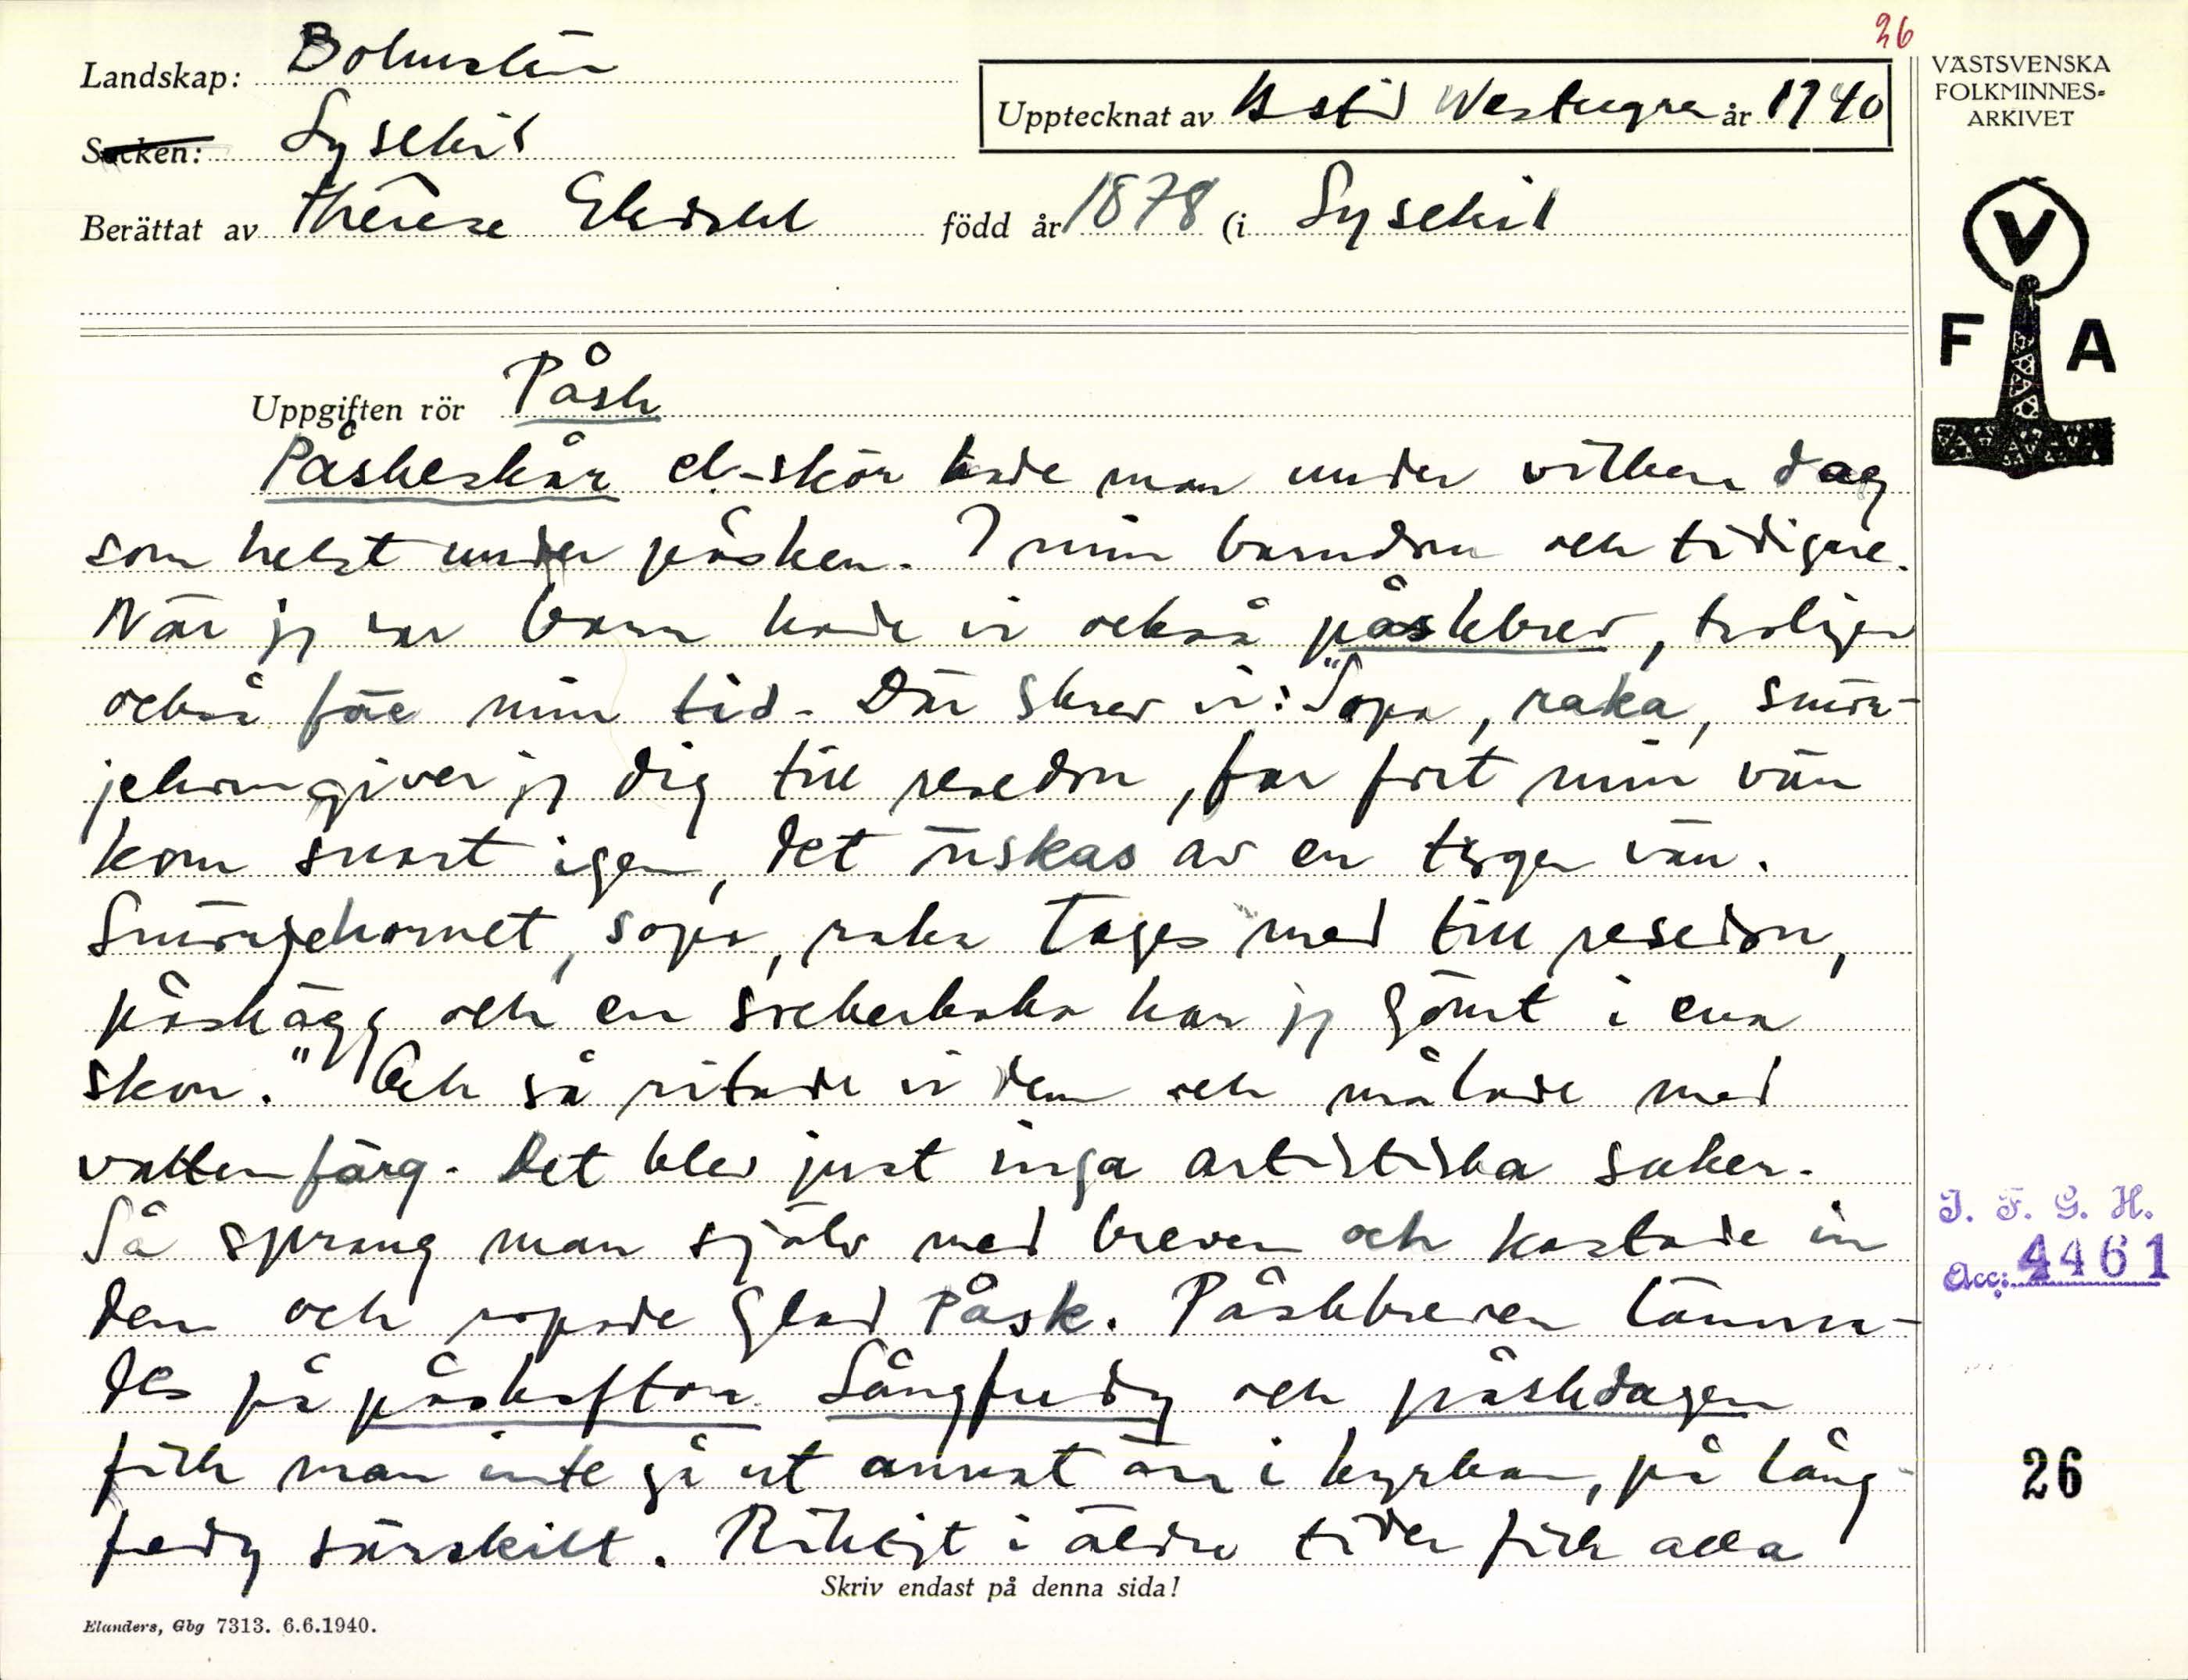 26
Landskap: Bohuslän
Upptecknat av Astid Westergren år 1940
VÄSTSVENSKA
FOLKMINNES-
ARKIVET
Socken: Lysekil
Berättat av Thérèse född år 1878 (i Lysekil
V
F A
Uppgiften rör Påsk
Påskeskår el. -skör hade man under vilken dag
som helst under påsken. I min barndom och tidigare.
När jg var barn hade vi också påskbrev, troligen
också före min tid. Där skrev vi: "Sopa, raka, smör-
jehorn giver jg dig till resedon, far fort min vän
kom snart igen, det önskas av en trogen vän.
Smörjehornet, sopa, raka tages med till resedon,
påskägg och en sockerkaka har jg gömt i ena
skon." Och så ritade vi dem och målade med
vattenfärg. Det blev just inga artistiska saker.
Så sprang man själv med breven och kastade in
dem och ropade Glad Påsk. Påskbreven lämna-
des på påskafton. Långfredg och påskdagen
fick man inte gå ut annat än i kyrkan, på lång-
fredg särskilt. Riktigt i äldre tider fick alla
Skriv endast på denna sida!
Elanders, Gbg 7313. 6.6.1940.
I. F. G. H.
Acc: 4461
26